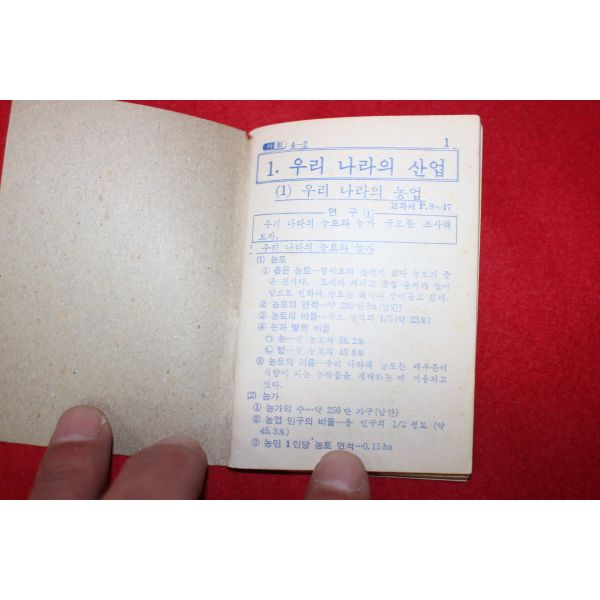 사회 4-2 1
1. 우리 나라의 산업
(1) 우리 나라의 농업
교과서 P. 9~17
연 구 1
우리 나라의 농토와 농가 규모를 조사해
보자.
우리 나라의 농토와 농가
(1) 농토
① 좁은 농토…평야보다 산지가 많아 농토가 좁
은 편이다. 도시가 커지고 공업 용지가 늘어
남으로 인하여 농토는 해마다 줄어들고 있다.
② 농토의 면적…약 220만 ha(남한)
③ 농토의 비율…국토 면적의 1/5(약 23%)
④ 논과 밭의 비율
㉠ 논…전 농토의 56.2%
㉡ 밭…전 농토의 43.8%
⑤ 농토의 이용…우리 나라의 농토는 대부분이
식량이 되는 농작물을 재배하는 데 이용되고
있다.
(2) 농가
① 농가의 수…약 250만 가구(남한)
② 농업 인구의 비율…총 인구의 1/2 정도 (약
45.3%)
③ 농민 1인당 농토 면적…0.15 ha